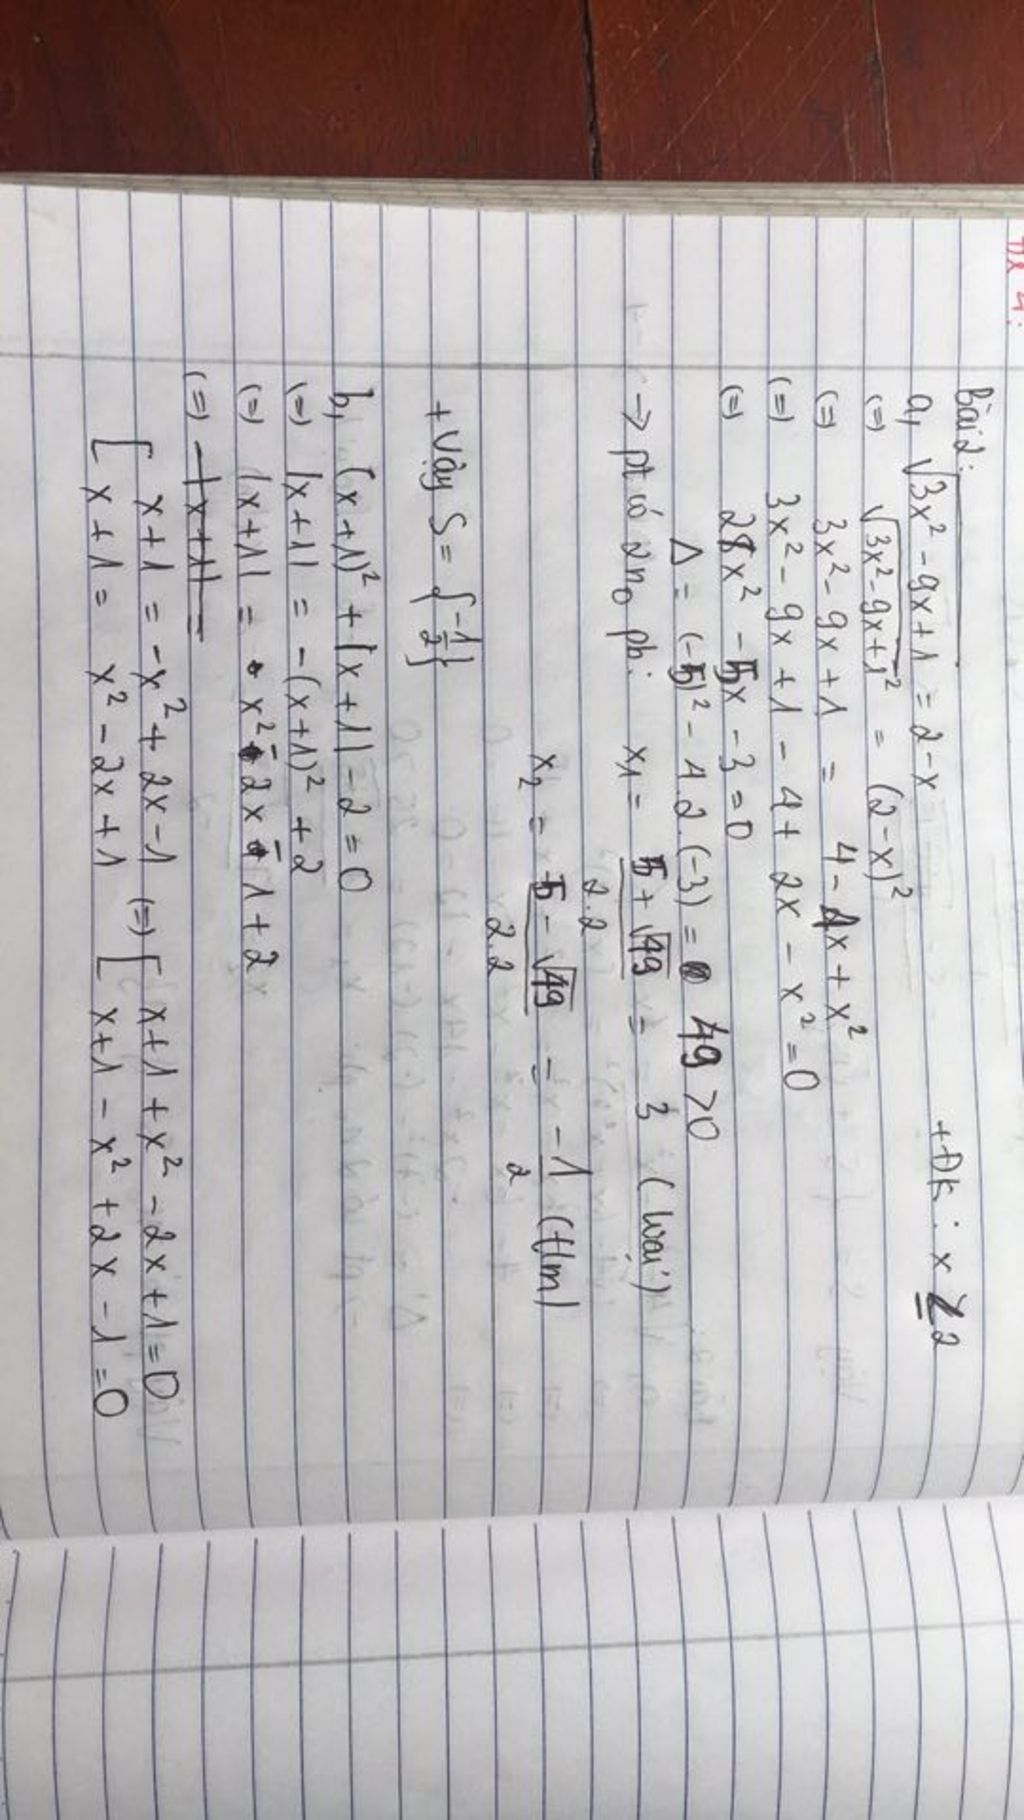 Bài 2:
a, √3x² - 9x + 1 = 2 - x +ĐK: x ≤ 2
(=) √3x² - 9x + 1² = (2 - x)²
(=) 3x² - 9x + 1 = 4 - 4x + x²
(=) 3x² - 9x + 1 - 4 + 2x - x² = 0
(=) 2x² - 5x - 3 = 0
Δ = (-5)² - 4.2.(-3) = 49 > 0
→ pt có 2 n0 pb: x₁ = 5 + √49 / 2.2 = 3 (loại)
x₂ = 5 - √49 / 2.2 = -1/2 (t/m)
+ Vậy S = {-1/2}
b, (x + 1)² + |x + 1| - 2 = 0
(=) |x + 1| = -(x + 1)² + 2
(=) |x + 1| = - x² - 2x - 1 + 2
(=) |x + 1| =
[ x + 1 = -x² + 2x - 1 (=) [ x + 1 + x² - 2x + 1 = 0
[ x + 1 = x² - 2x + 1 [ x + 1 - x² + 2x - 1 = 0